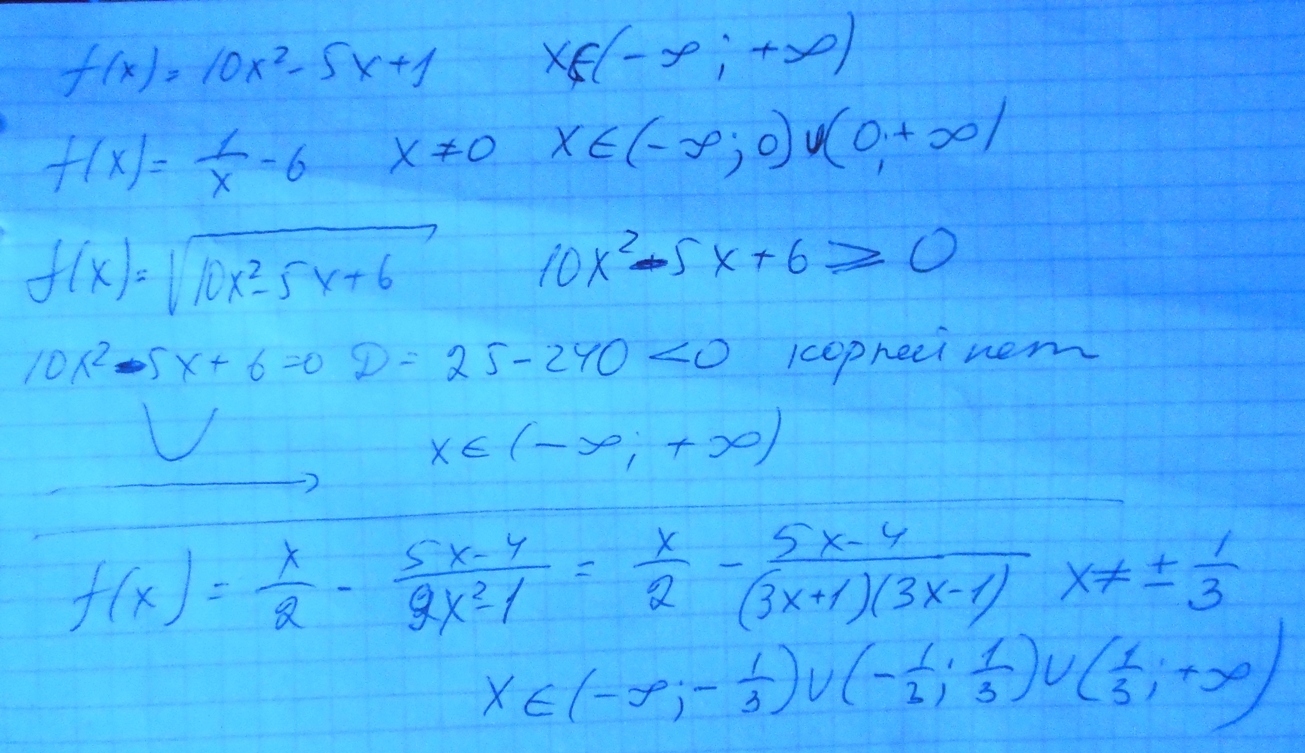 f(x)= 10x²-5x+1 x∈(-∞;+∞)
f(x)= 1/x -6 x≠0 x∈(-∞;0)∪(0;+∞)
f(x)=√(10x²-5x+6) 10x²-5x+6≥0
10x²-5x+6=0 D= 25-240<0 корней нет
x∈(-∞;+∞)
f(x)= x/2 - (5x-4)/(9x²-1) = x/2 - (5x-4)/((3x+1)(3x-1)) x≠±1/3
x∈(-∞;-1/3)∪(-1/3;1/3)∪(1/3;+∞)